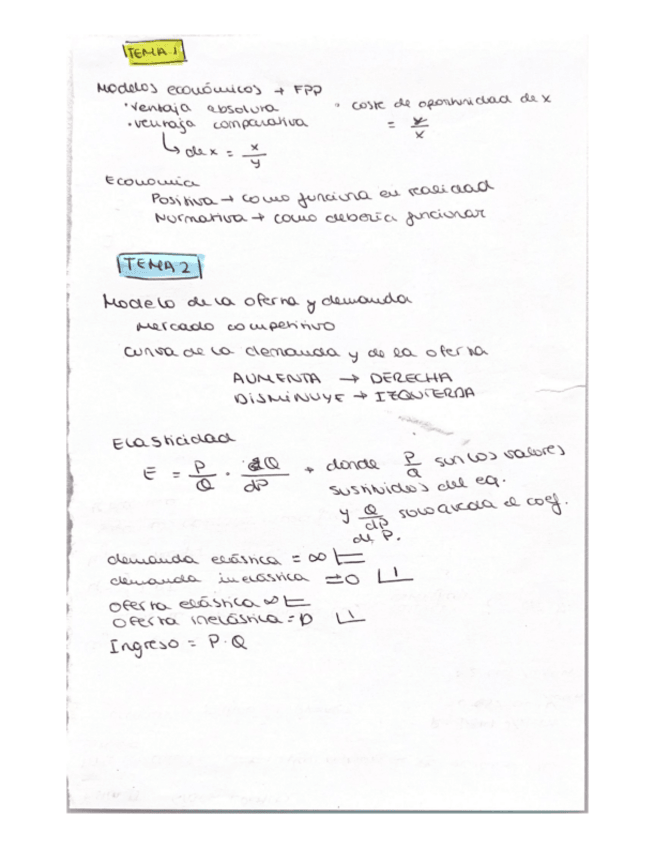 TEMA 1
Modelos económicos → FPP
· ventaja absoluta · coste de oportunidad de x
· ventaja comparativa = y/x
↳ de x = x/y
Economia
Positiva → como funciona en realidad
Normativa → como deberia funcionar
TEMA 2
Modelo de la oferta y demanda
Mercado competitivo
curva de la demanda y de la oferta
AUMENTA → DERECHA
DISMINUYE → IZQUIERDA
Elasticidad
E = P/Q · dQ/dP → donde P/Q son los valores
sustituidos del eq.
y Q/dP solo queda el coef.
de P.
demanda elástica = ∞
demanda inelástica = 0
oferta elástica ∞
oferta inelástica = 0
Ingreso = P·Q